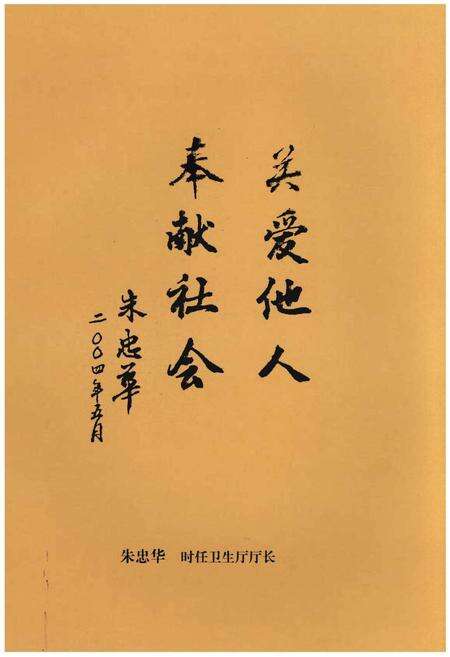 关爱他人
奉献社会
朱忠华
二〇〇四年五月
朱忠华 时任卫生厅厅长